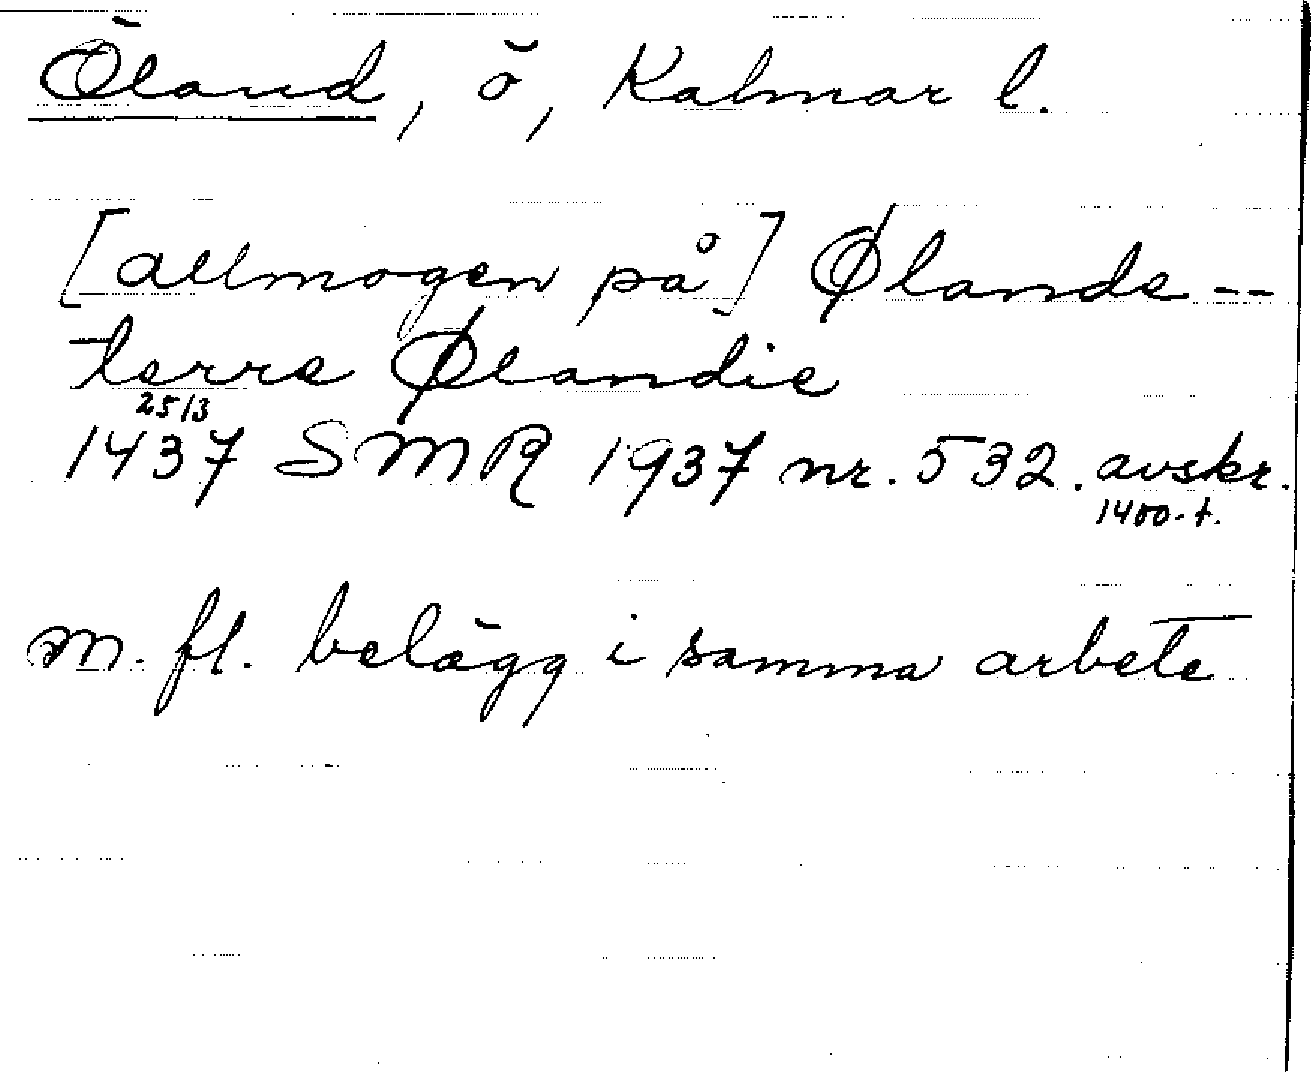 Öland, ö, Kalmar l.
[allmogen på] Ølande --
terre Ølandie
25/3
1437 SMR 1937 nr. 532. avskr.
1400-t.
m. fl. belägg i samma arbete